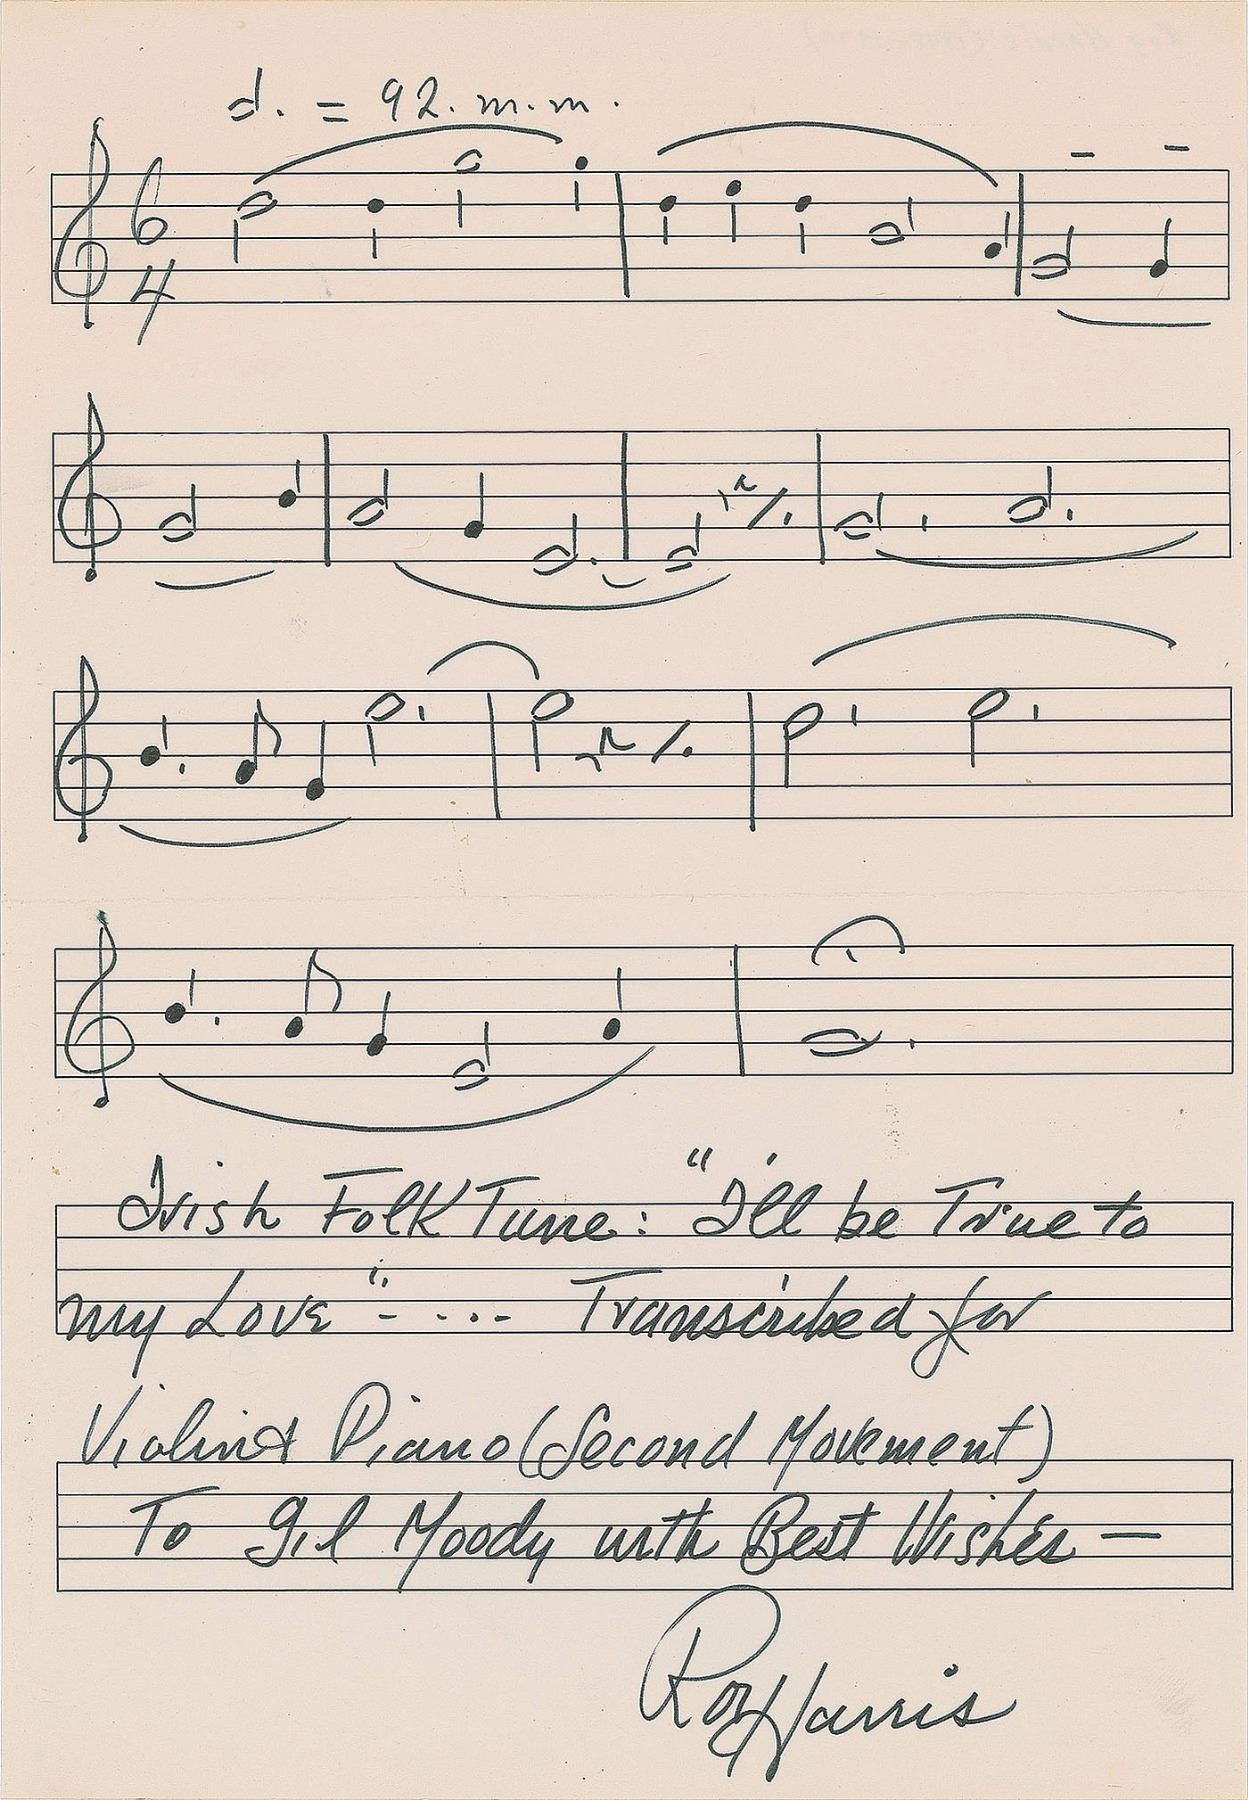 𝅗𝅥. = 92. m.m.
6
4
Irish Folk Tune: "I'll be True to
my Love" - ... Transcribed for
Violin & Piano (Second Movement)
To Gil Moody with Best Wishes —
Roy Harris